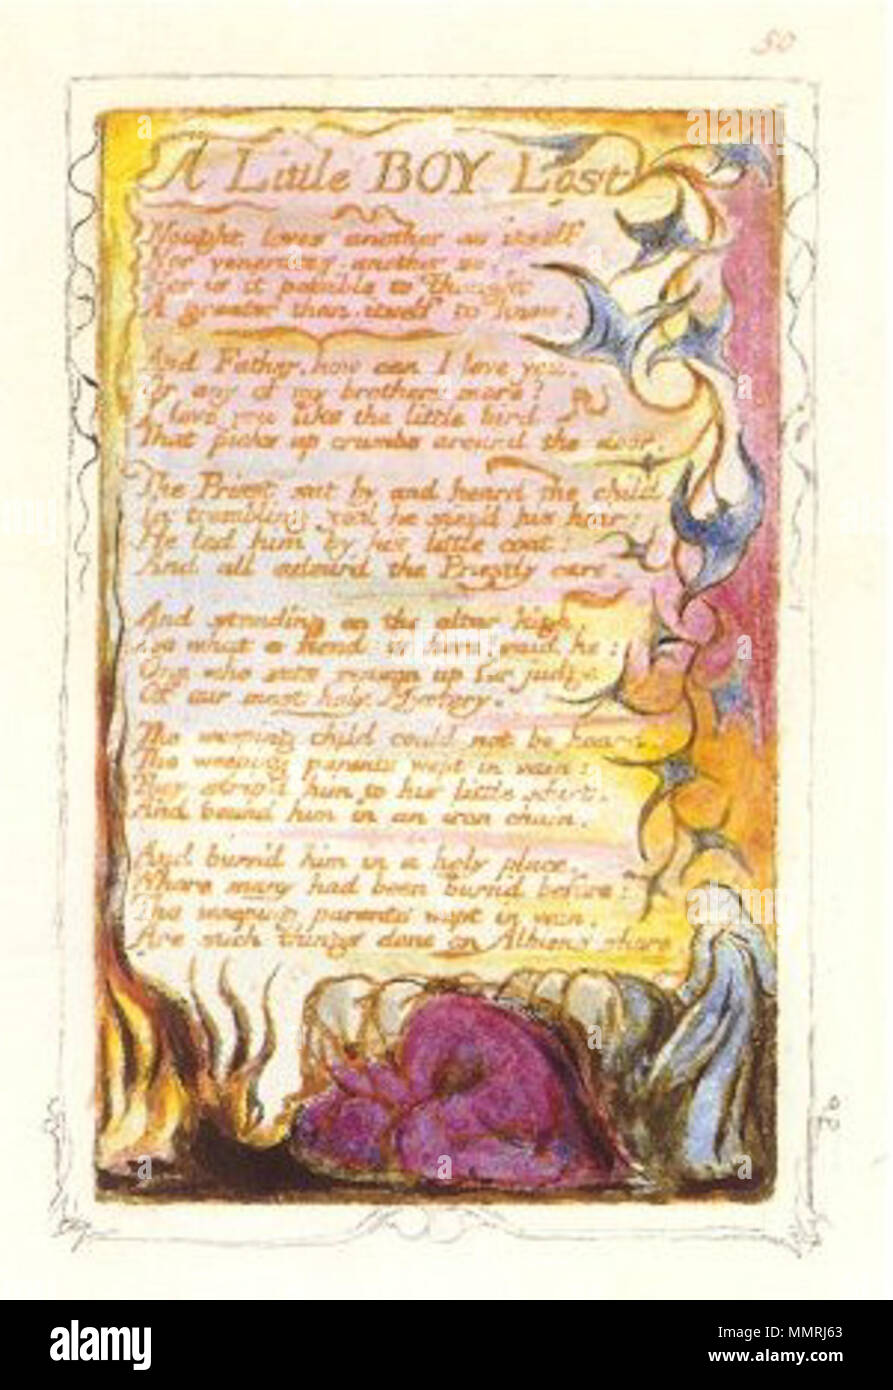 50
A Little BOY Lost
Nought loves another as itself
Nor venerates another so.
Nor is it possible to Thought
A greater than itself to know:
And Father, how can I love you,
Or any of my brothers more?
I love you like the little bird
That picks up crumbs around the door.
The Priest sat by and heard the child.
In trembling zeal he siez'd his hair:
He led him by his little coat:
And all admir'd the Priestly care.
And standing on the altar high,
Lo what a fiend is here! said he:
One who sets reason up for judge
Of our most holy Mystery.
The weeping child could not be heard.
The weeping parents wept in vain:
They strip'd him to his little shirt.
And bound him in an iron chain.
And burn'd him in a holy place,
Where many had been burn'd before:
The weeping parents wept in vain.
Are such things done on Albions shore
alamy
Image ID: MMRJ63
www.alamy.com